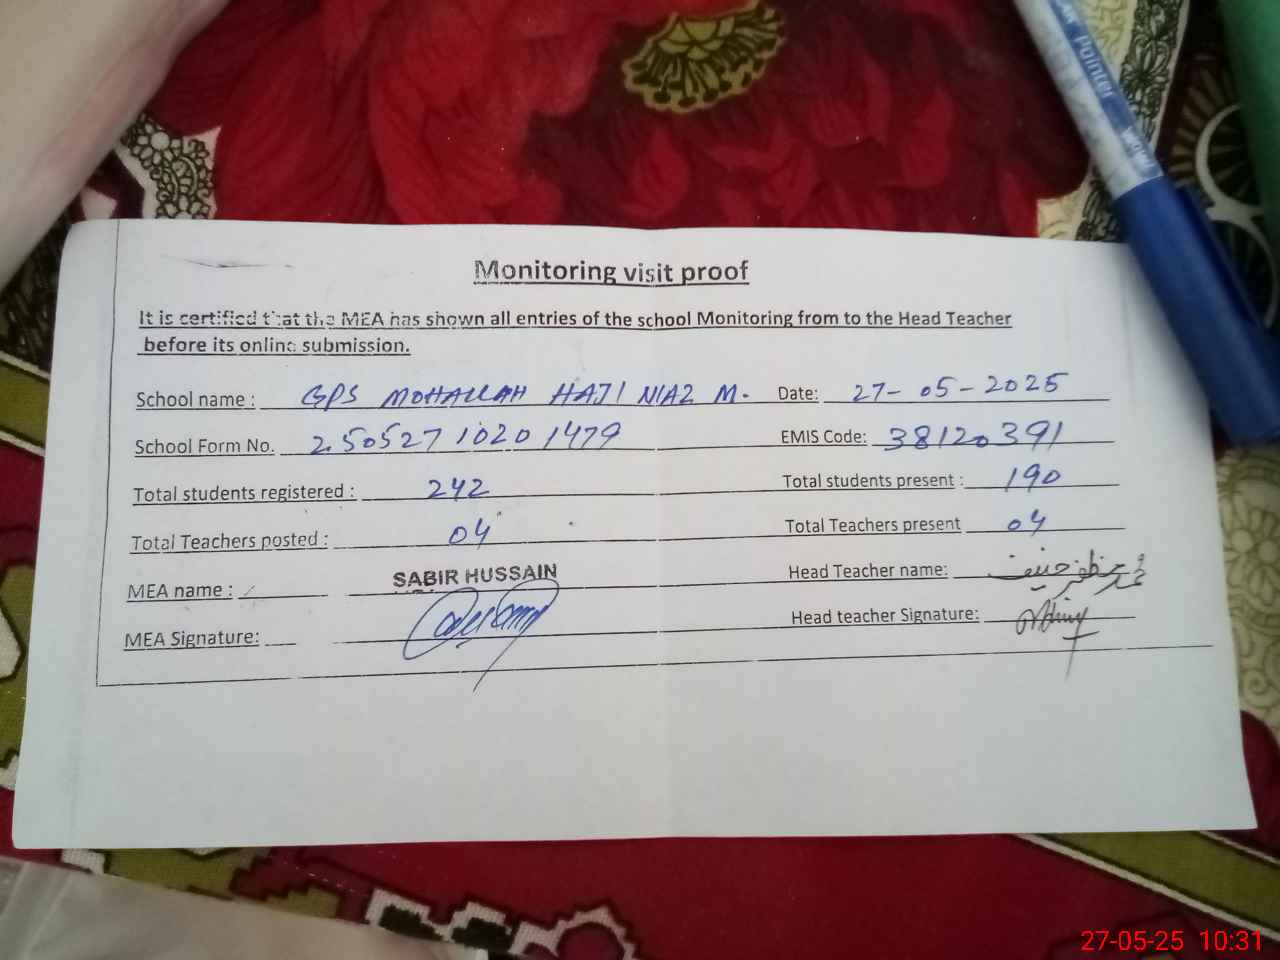 Pointer
Monitoring visit proof
It is certified that the MEA has shown all entries of the school Monitoring from to the Head Teacher
before its online submission.
School name : GPS MOHALLAH HAJI NIAZ M. Date: 27-05-2025
School Form No. 250527 1020 1479 EMIS Code: 38120391
Total students registered : 242 Total students present : 190
Total Teachers posted : 04 Total Teachers present 04
MEA name : SABIR HUSSAIN Head Teacher name: محمد مظفر حنیف
MEA Signature: Head teacher Signature:
27-05-25 10:31